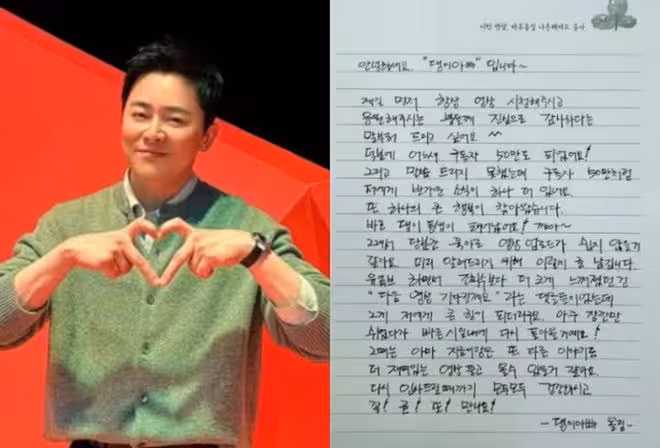 이런 영상, 하루종일 나른해져도 좋아
안녕하세요. "댕이아빠" 입니다~
제일 먼저 항상 영상 시청해주시고
응원해주시는 분들께 진심으로 감사하다는
말부터 드리고 싶어요 ^^
덕분에 어느새 구독자 50만도 되었어요!
그리고 말씀 드리지 못했는데 구독자 50만처럼
저에게 반가운 소식이 하나 더 있네요.
또 하나의 큰 행복이 찾아왔습니다.
바로 댕이 동생이 생겼어요! 꺄아~
그래서 당분간 육아로 영상 업로드가 쉽지 않을거
같아요 미리 알려드리기 위해 이렇게 글 남깁니다.
유튜브 하면서 조회수보다 더 크게 느껴졌던건
"다음 영상 기다릴게요" 라는 댓글들이었는데
그게 저에게 큰 힘이 되더라구요. 아주 잠깐만
쉬었다가 빠른 시일내에 다시 돌아올거예요!
그때는 아마 지금이랑은 또 다른 이야기로
더 재미있는 영상 들고 올수 있을거 같아요.
다시 인사드릴때까지 모두모두 건강하시고
길! 곧! 또! 만나요!
- 댕이아빠 올림-